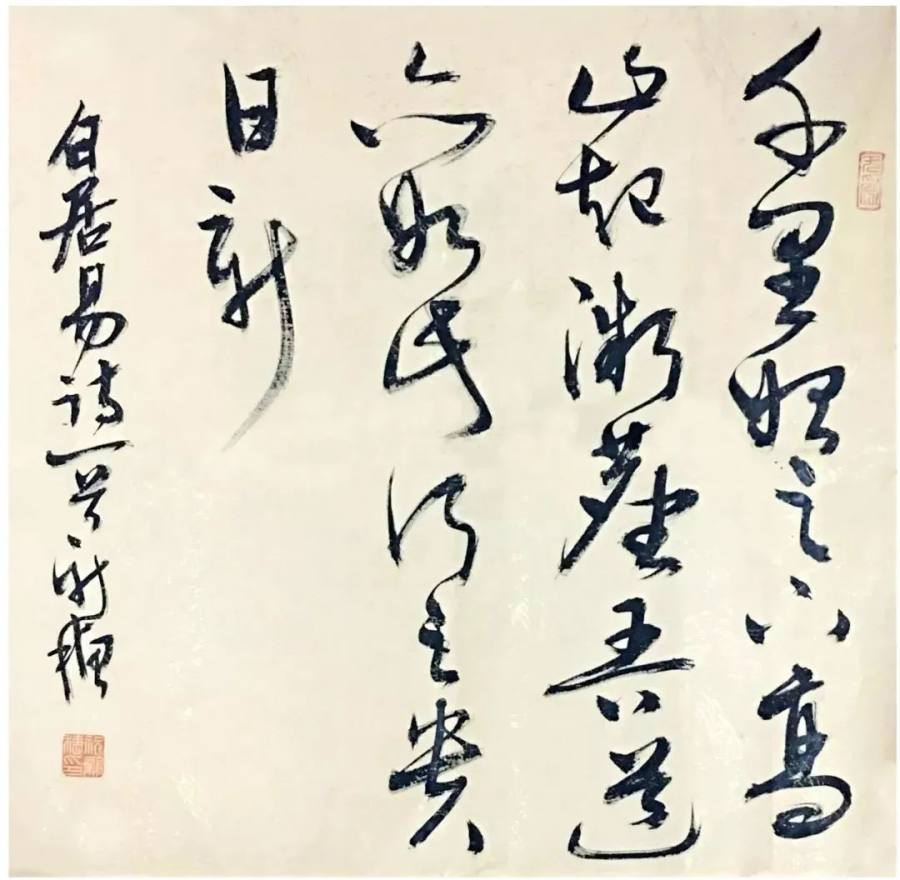 千里始足下高
山起微塵吾道
亦如此行之贵
日新
白居易诗一首 新